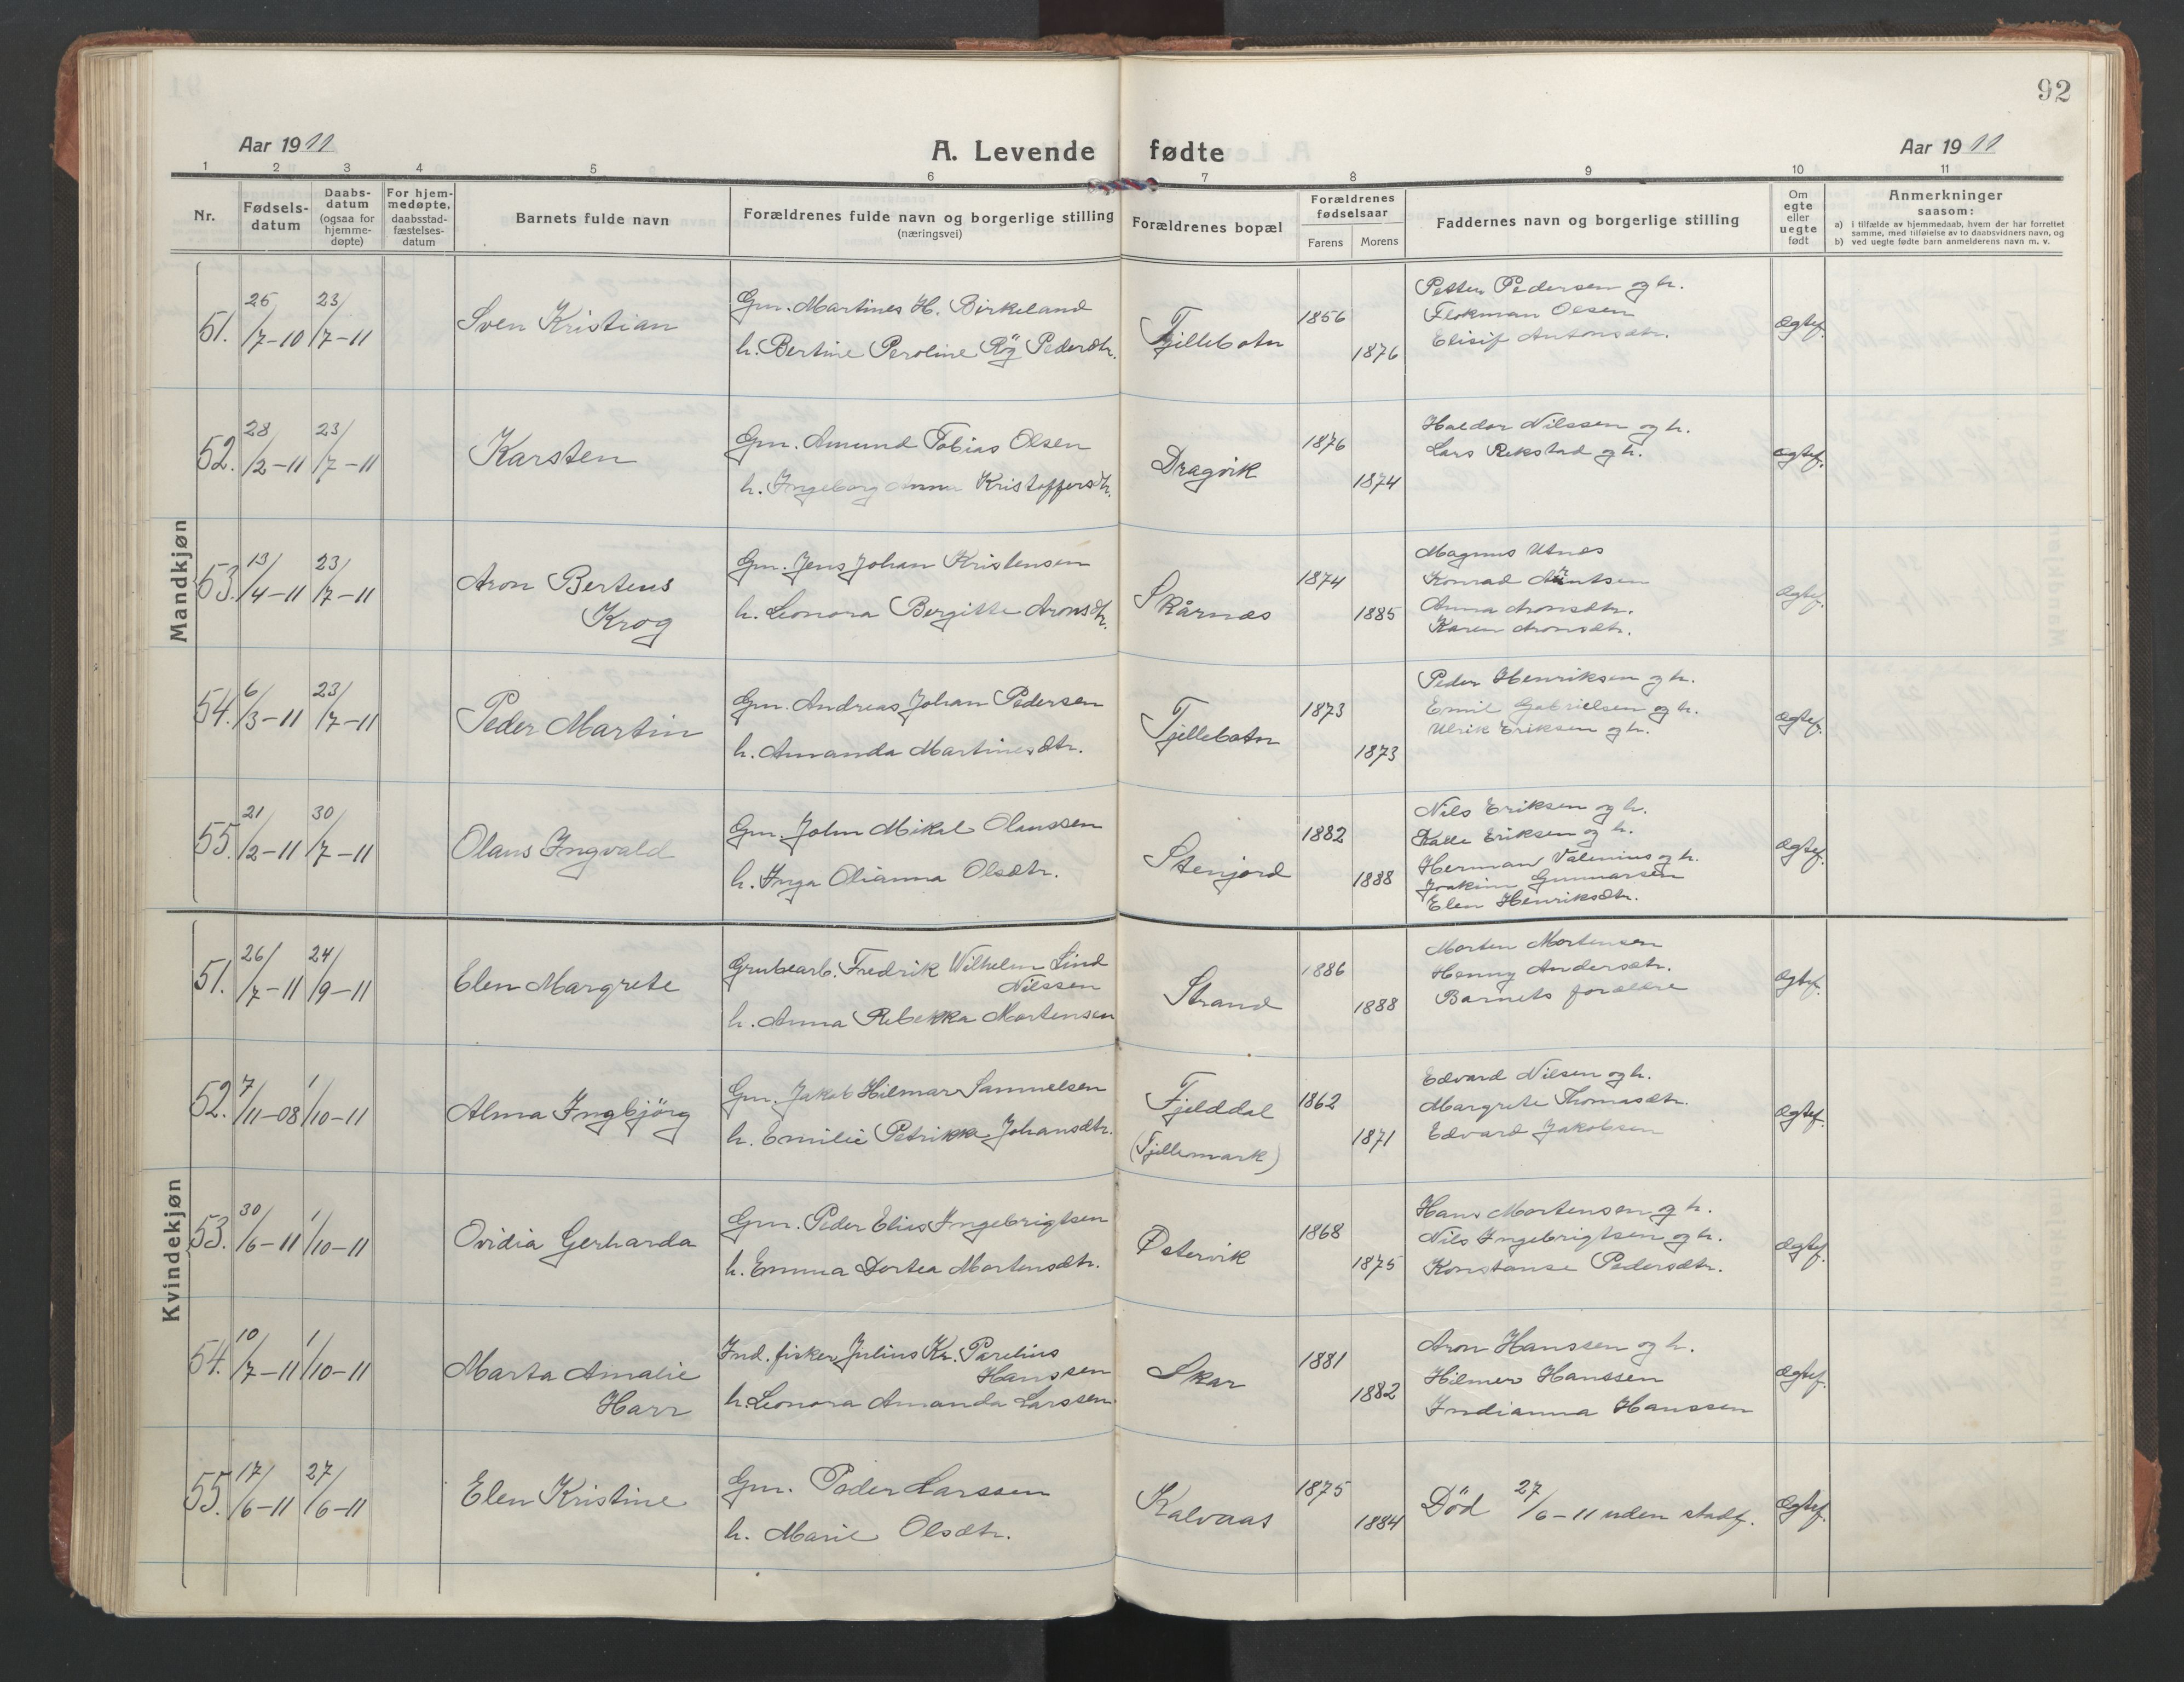 92
Aar 1911
A. Levende fødte
Aar 1911
1 2 3 4 5 6 7 8 9 10 11
Nr.
Fødsels-
datum
Daabs-
datum
(ogsaa for
hjemme-
døpte)
For hjem-
medøpte,
daabsstad-
fæstelses-
datum
Barnets fulde navn
Forældrenes fulde navn og borgerlige stilling
(næringsvei)
Forældrenes bopæl
Forældrenes
fødselsaar
Farens Morens
Faddernes navn og borgerlige stilling
Om
egte
eller
uegte
født
Anmerkninger
saasom:
a) i tilfælde av hjemmedaab, hvem der har forrettet
samme, med tilføielse av to daabsvidners navn, og
b) ved uegte fødte barn anmelderens navn m. v.
Mandkjøn
51. 26/7-10 23/7-11
Sven Kristian
Gm. Martines H. Birkeland
h. Bertine Peroline Røg Pedersdtr.
Tjillebotn
1856
1876
Petter Pedersen og h.
Flokman Olsen
Elisif Antonsdtr.
Ægtef.
52. 28/2-11 23/7-11
Karsten
Gm. Amund Tobias Olsen
h. Ingeborg Anna Kristoffersdtr.
Dragvik
1876
1874
Haldor Nilssen og h.
Lars Rekstad og h.
ægtef.
53. 13/4-11 23/7-11
Aron Berteus
Krog
Gm. Jens Johan Kristensen
h. Leonora Bergitte Aronsdtr.
Skårnes
1874
1885
Magnus Utnes
Konrad
Anna Aronsdtr.
Karen Aronsdtr.
Ægtef.
54. 6/3-11 23/7-11
Peder Martin
Gm. Andreas Johan Pedersen
h. Amanda Martinesdtr.
Tjellebotn
1873
1873
Peder Henriksen og h.
Emil Gabrielsen og h.
Ulrik Eriksen og h.
Ægtef.
55. 21/2-11 30/7-11
Olaus Ingvald
Gm. John Mikal Olaussen
h. Inga Olianna Olsdtr.
Stenjord
1882
1888
Nils Eriksen og h.
Kalle Eriksen og h.
Herman Valenius og h.
Joakim Gunnarsen
Elen Henriksdtr.
Ægtef.
Kvindekjøn
51. 26/7-11 24/9-11
Elen Margrete
Grubearb. Fredrik Wilhelm Lind
Nilssen
h. Anna Rebekka Mortensen
Strand
1886
1888
Morten Mortensen
Henny Andersdtr.
Barnets forældre
Ægtef.
52. 7/11-08 1/10-11
Alma Ingbjörg
Gm. Jakob Hilmar Samuelsen
h. Emilie Petrikke Johansdtr.
Fjelddal
(Tjillemark)
1862
1871
Edvard Nilsen og h.
Margrete Thomasdtr.
Edvard Jakobsen
Ægtef.
53. 30/6-11 1/10-11
Ovidia Gerharda
Gm. Peder Elias Ingebrigtsen
h. Emma Dortea Mortensdtr.
Østervik
1868
1875
Hans Mortensen og h.
Nils Ingebrigtsen og h.
Konstanse Pedersdtr.
Ægtef.
54. 10/7-11 1/10-11
Marta Amalie
Harr
Ind. fisker Julius Kr. Parelius
Hanssen
h. Leonora Amanda Larssen
Skar
1881
1882
Aron Hanssen og h.
Hilmer Hanssen
Indianna Hanssen
Ægtef.
55. 17/6-11 27/6-11
Elen Kristine
Gm. Peder Larssen
h. Marie Olsdtr.
Kalvaas
1875
1884
Död 27/6-11 uden stadf.
Ægtef.